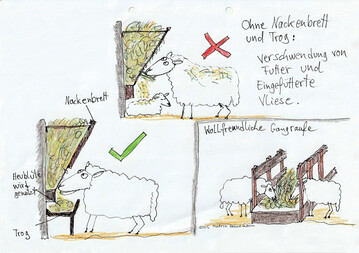 Ohne Nackenbrett
und Trog:
Verschwendung von
Futter und
Eingefütterte
Vliese.
Nackenbrett
Heublüte
wird
genutzt
Trog
Wollfreundliche Gangraufe